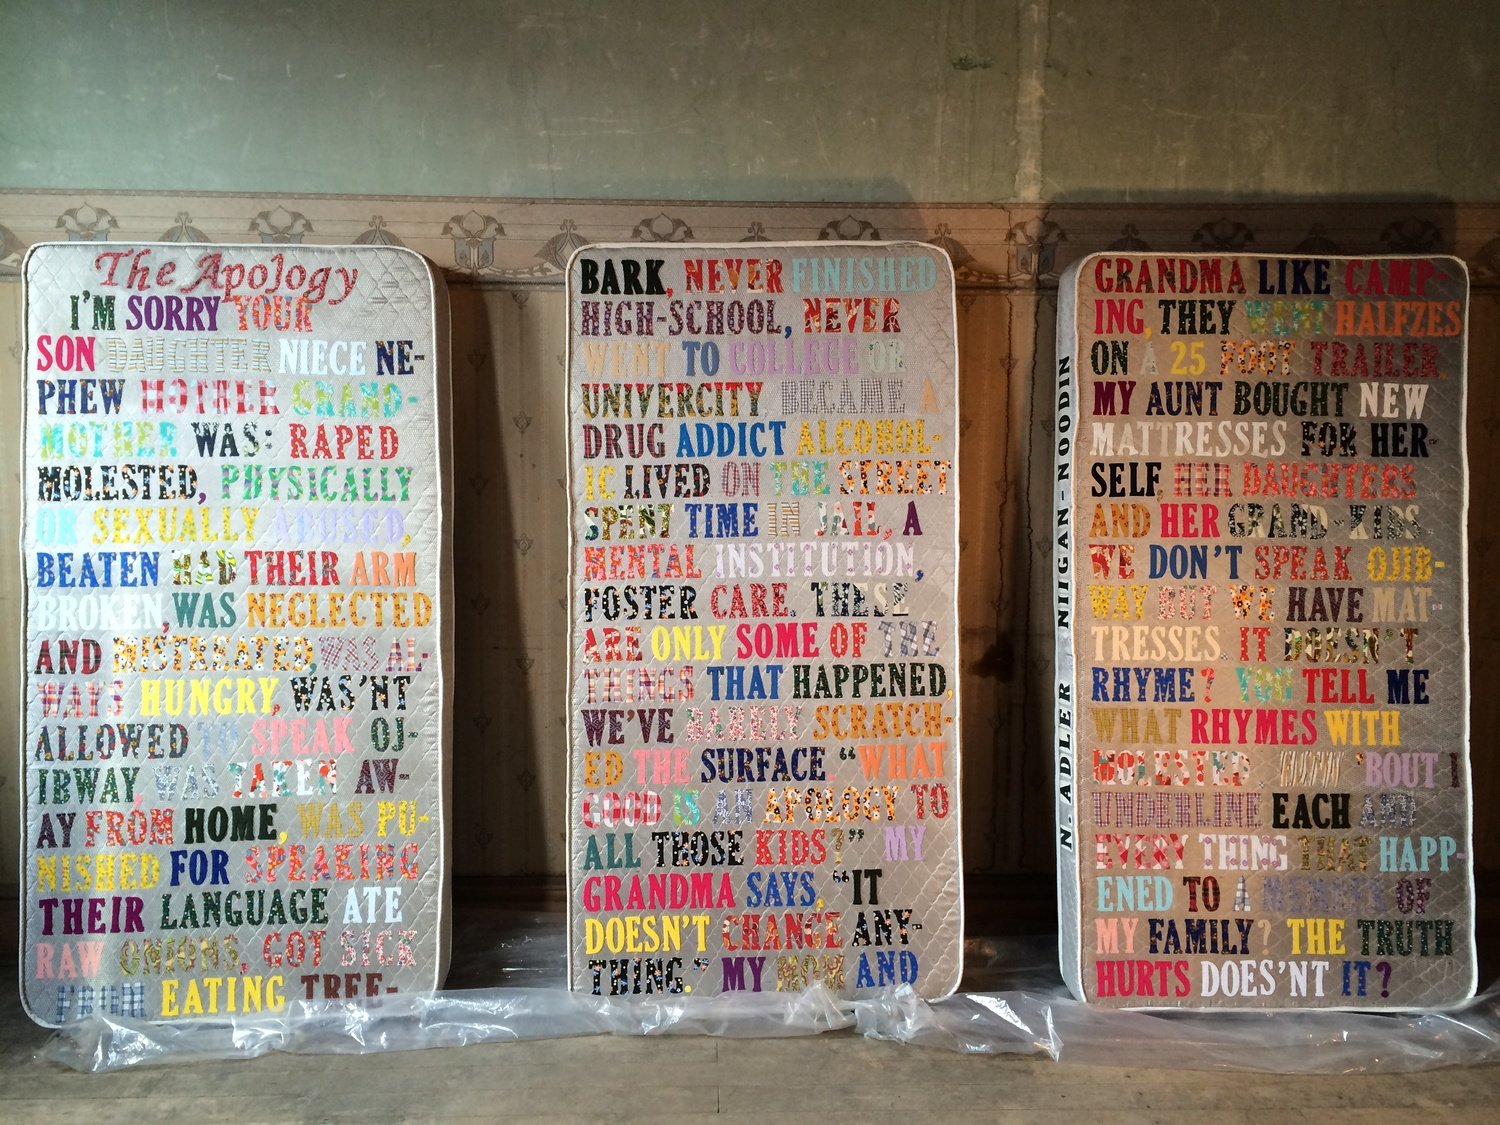 The Apology
I'M SORRY YOUR
SON DAUGHTER NIECE NE-
PHEW MOTHER GRAND-
MOTHER WAS: RAPED
MOLESTED, PHYSICALLY
OR SEXUALLY ABUSED,
BEATEN HAD THEIR ARM
BROKEN, WAS NEGLECTED
AND MISTREATED, WAS AL-
WAYS HUNGRY, WAS'NT
ALLOWED TO SPEAK OJ-
IBWAY WAS TAKEN AW-
AY FROM HOME, WAS PU-
NISHED FOR SPEAKING
THEIR LANGUAGE ATE
RAW ONIONS, GOT SICK
FROM EATING TREE-
BARK, NEVER FINISHED
HIGH-SCHOOL, NEVER
WENT TO COLLEGE OR
UNIVERCITY BECAME A
DRUG ADDICT ALCOHOL-
IC LIVED ON THE STREET
SPENT TIME IN JAIL, A
MENTAL INSTITUTION,
FOSTER CARE. THESE
ARE ONLY SOME OF THE
THINGS THAT HAPPENED,
WE'VE BARELY SCRATCH-
ED THE SURFACE. "WHAT
GOOD IS AN APOLOGY TO
ALL THOSE KIDS?" MY
GRANDMA SAYS, "IT
DOESN'T CHANGE ANY-
THING." MY MOM AND
N. ADLER NIIGAN-NOODIN
GRANDMA LIKE CAMP-
ING, THEY WENT HALFZES
ON A 25 FOOT TRAILER.
MY AUNT BOUGHT NEW
MATTRESSES FOR HER-
SELF, HER DAUGHTERS
AND HER GRAND-KIDS.
WE DON'T SPEAK OJIB-
WAY BUT WE HAVE MAT-
TRESSES. IT DOESN'T
RHYME? YOU TELL ME
WHAT RHYMES WITH
MOLESTED. 'BOUT I
UNDERLINE EACH AND
EVERY THING THAT HAPP-
ENED TO A MEMBER OF
MY FAMILY? THE TRUTH
HURTS DOES'NT IT?